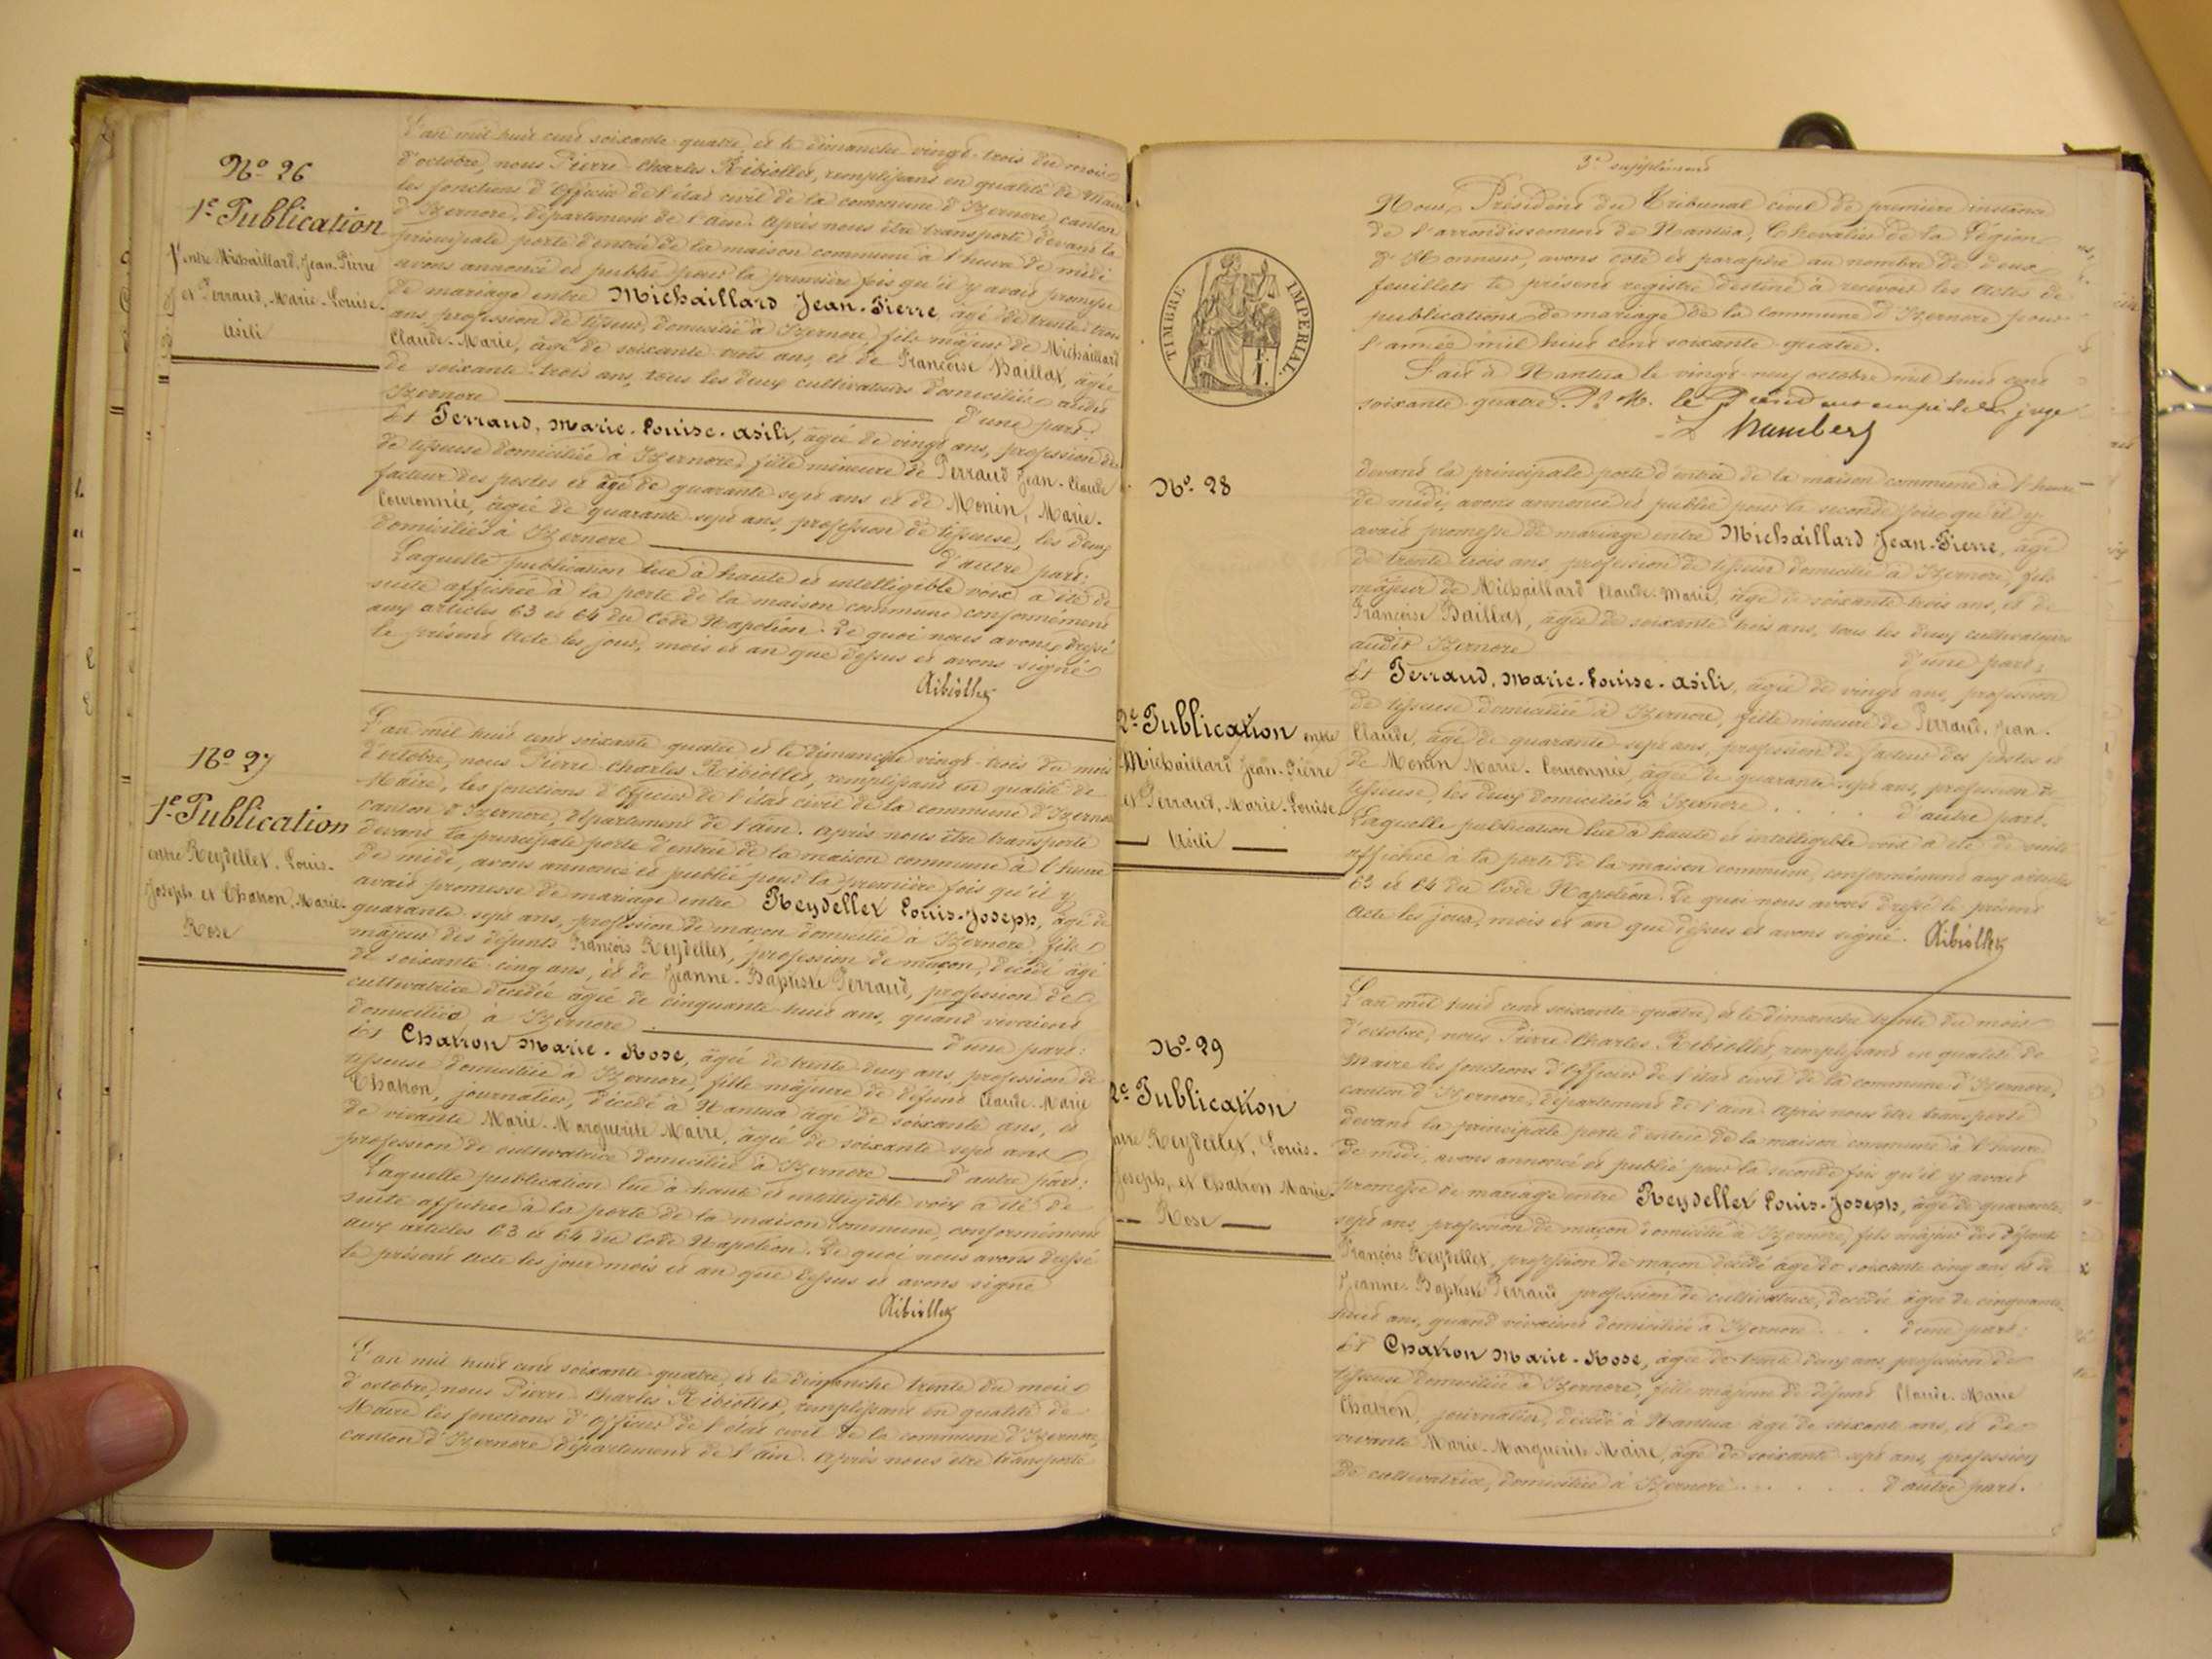 N.º 26
1.e Publication
entre Michaillard, Jean-Pierre
et Perraud, Marie-Louise-
Asili
L'an mil huit cent soixante-quatre, et le dimanche vingt-trois du mois
d'octobre, nous Pierre-Charles Ribiollet, remplissant en qualité de Maire
les fonctions d'Officier de l'état civil de la commune d'Izernore, canton
d'Izernore, département de l'ain. Après nous être transporté devant la
principale porte d'entrée de la maison commune à l'heure de midi
avons annoncé et publié pour la première fois qu'il y avait promesse
de mariage entre Michaillard Jean-Pierre, âgé de trente-trois
ans, profession de tisseur, domicilié à Izernore, fils majeur de Michaillard
Claude-Marie, âgé de soixante-trois ans, et de Françoise Baillat, âgée
de soixante-trois ans, tous les deux cultivateurs domiciliés audit
Izernore d'une part:
Et Perraud, Marie-Louise-Asili, âgée de vingt ans, profession de
de tisseuse domiciliée à Izernore, fille mineure de Perraud Jean-Claude
facteur des postes et âgé de quarante-sept ans et de Monin, Marie-
Couronnée, âgée de quarante-sept ans, profession de tisseuse, les deux
domiciliés à Izernore d'autre part:
Laquelle publication lue à haute et intelligible voix a été de
suite affichée à la porte de la maison commune conformément
aux articles 63 et 64 du Code Napoléon. De quoi nous avons dressé
le présent acte les jour, mois et an que dessus et avons signé
Ribiollet
N.º 27
1.e Publication
entre Reydellet, Louis-
Joseph et Chatron, Marie-
Rose
L'an mil huit cent soixante-quatre et le dimanche vingt-trois du mois
d'octobre, nous Pierre-Charles Ribiollet, remplissant en qualité de
Maire, les fonctions d'Officier de l'état civil de la commune d'Izernore
canton d'Izernore, département de l'ain. Après nous être transporté
devant la principale porte d'entrée de la maison commune à l'heure
de midi, avons annoncé et publié pour la première fois qu'il y
avait promesse de mariage entre Reydellet Louis-Joseph, âgé de
quarante-sept ans, profession de maçon domicilié à Izernore, fils
majeur des défunts François Reydellet, profession de maçon, décédé âgé
de soixante-cinq ans, et de Jeanne-Baptiste Perraud, profession de
cultivatrice décédée âgée de cinquante-huit ans, quand vivaient
domiciliés à Izernore d'une part:
Et Chatron Marie-Rose, âgée de trente-deux ans, profession de
tisseuse domiciliée à Izernore, fille majeure de défunt Claude-Marie
Chatron, journalier, décédé à Nantua âgé de soixante ans, et
de vivante Marie-Marguerite Maire, âgée de soixante-sept ans
profession de cultivatrice domiciliée à Izernore d'autre part:
Laquelle publication lue à haute et intelligible voix a été de
suite affichée à la porte de la maison commune, conformément
aux articles 63 et 64 du Code Napoléon. De quoi nous avons dressé
le présent acte les jour mois et an que dessus et avons signé
Ribiollet
L'an mil huit cent soixante-quatre, et le dimanche trente du mois
d'octobre, nous Pierre-Charles Ribiollet, remplissant en qualité de
Maire les fonctions d'Officier de l'état civil de la commune d'Izernore,
canton d'Izernore département de l'ain. Après nous être transporté
3.e supplément
TIMBRE IMPERIAL
1 F.
Nous, Président du Tribunal civil de première instance
de l'arrondissement de Nantua, Chevalier de la Légion
d'Honneur, avons coté et paraphé au nombre de deux
feuillets le présent registre destiné à recevoir les Actes de
publications de mariage de la commune d'Izernore pour
l'année mil huit cent soixante-quatre.
Fait à Nantua le vingt-neuf octobre mil huit cent
soixante-quatre. P.r M. le Président empêché juge
N.º 28
2.e Publication entre
Michaillard Jean-Pierre
et Perraud, Marie-Louise
Asili
devant la principale porte d'entrée de la maison commune à l'heure
de midi, avons annoncé et publié pour la seconde fois qu'il y
avait promesse de mariage entre Michaillard Jean-Pierre, âgé
de trente-trois ans, profession de tisseur domicilié à Izernore, fils
majeur de Michaillard Claude-Marie, âgé de soixante-trois ans, et de
Françoise Baillat, âgée de soixante trois ans, tous les deux cultivateurs
audit Izernore d'une part:
Et Perraud, Marie-Louise-Asili, âgée de vingt ans, profession
de tisseuse domiciliée à Izernore, fille mineure de Perraud, Jean-
Claude, âgé de quarante-sept ans, profession de facteur des postes et
de Monin Marie-Couronnée, âgée de quarante-sept ans, profession de
tisseuse, les deux domiciliés à Izernore . . . . d'autre part.
Laquelle publication lue à haute et intelligible voix a été de suite
affichée à la porte de la maison commune, conformément aux articles
63 et 64 du Code Napoléon. De quoi nous avons dressé le présent
Acte les jour, mois et an que dessus et avons signé. Ribiollet
N.º 29
2.e Publication
entre Reydellet, Louis-
Joseph, et Chatron Marie-
Rose
L'an mil huit cent soixante-quatre, et le dimanche trente du mois
d'octobre, nous Pierre Charles Ribiollet, remplissant en qualité de
Maire les fonctions d'Officier de l'état civil de la commune d'Izernore,
canton d'Izernore, département de l'ain. Après nous être transporté
devant la principale porte d'entrée de la maison commune à l'heure
de midi, avons annoncé et publié pour la seconde fois qu'il y avait
promesse de mariage entre Reydellet Louis-Joseph, âgé de quarante-
sept ans, profession de maçon domicilié à Izernore, fils majeur des défunts
François Reydellet, profession de maçon décédé âgé de soixante cinq ans, et de
Jeanne-Baptiste Perraud, profession de cultivatrice, décédée âgée de cinquante-
huit ans, quand vivaient domiciliés à Izernore . . . d'une part:
Et Chatron Marie-Rose, âgée de trente deux ans, profession de
tisseuse domiciliée à Izernore, fille majeure de défunt Claude-Marie
Chatron, journalier, décédé à Nantua âgé de soixante ans, et de
vivante Marie-Marguerite Maire, âgée de soixante-sept ans, profession
de cultivatrice, domiciliée à Izernore . . . . . . d'autre part.